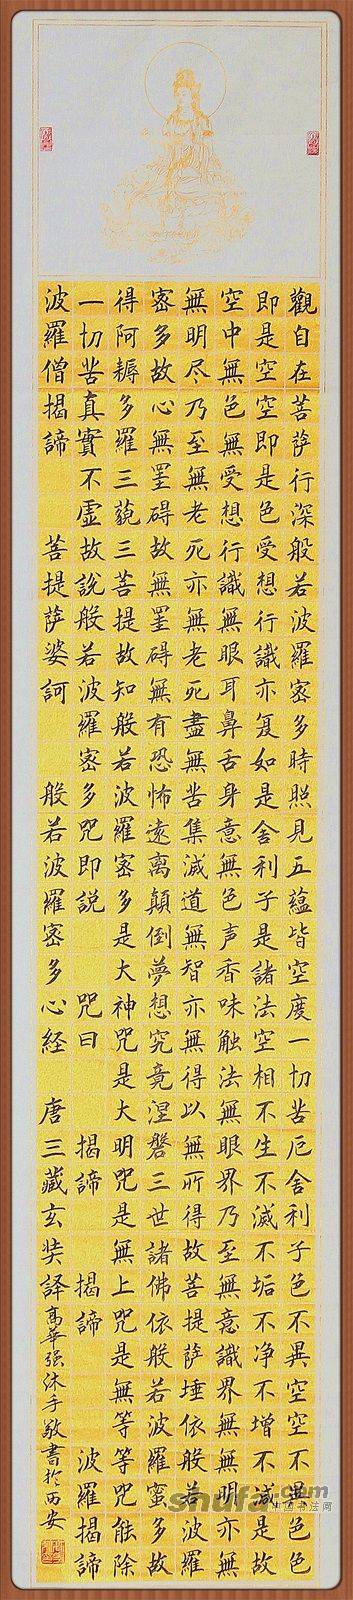 觀自在菩薩行深般若波羅密多時照見五蘊皆空度一切苦厄舍利子色不異空空不異色色
即是空空即是色受想行識亦复如是舍利子是諸法空相不生不滅不垢不净不增不減是故
空中無色無受想行識無眼耳鼻舌身意無色声香味触法無眼界乃至無意識界無無明亦無
無明尽乃至無老死亦無老死盡無苦集滅道無智亦無得以無所得故菩提薩埵依般若波羅
密多故心無罣碍故無罣碍無有恐怖遠离顛倒夢想究竟涅槃三世諸佛依般若波羅蜜多故
得阿耨多羅三藐三菩提故知般若波羅密多是大神咒是大明咒是無上咒是無等等咒能除
一切苦真實不虛故説般若波羅密多咒即説 咒曰 揭諦 揭諦 波羅揭諦
波羅僧揭諦 菩提薩婆訶 般若波羅密多心経 唐三藏玄奘譯 高華强沐手敬書於西安
shufa.com
中国书法网